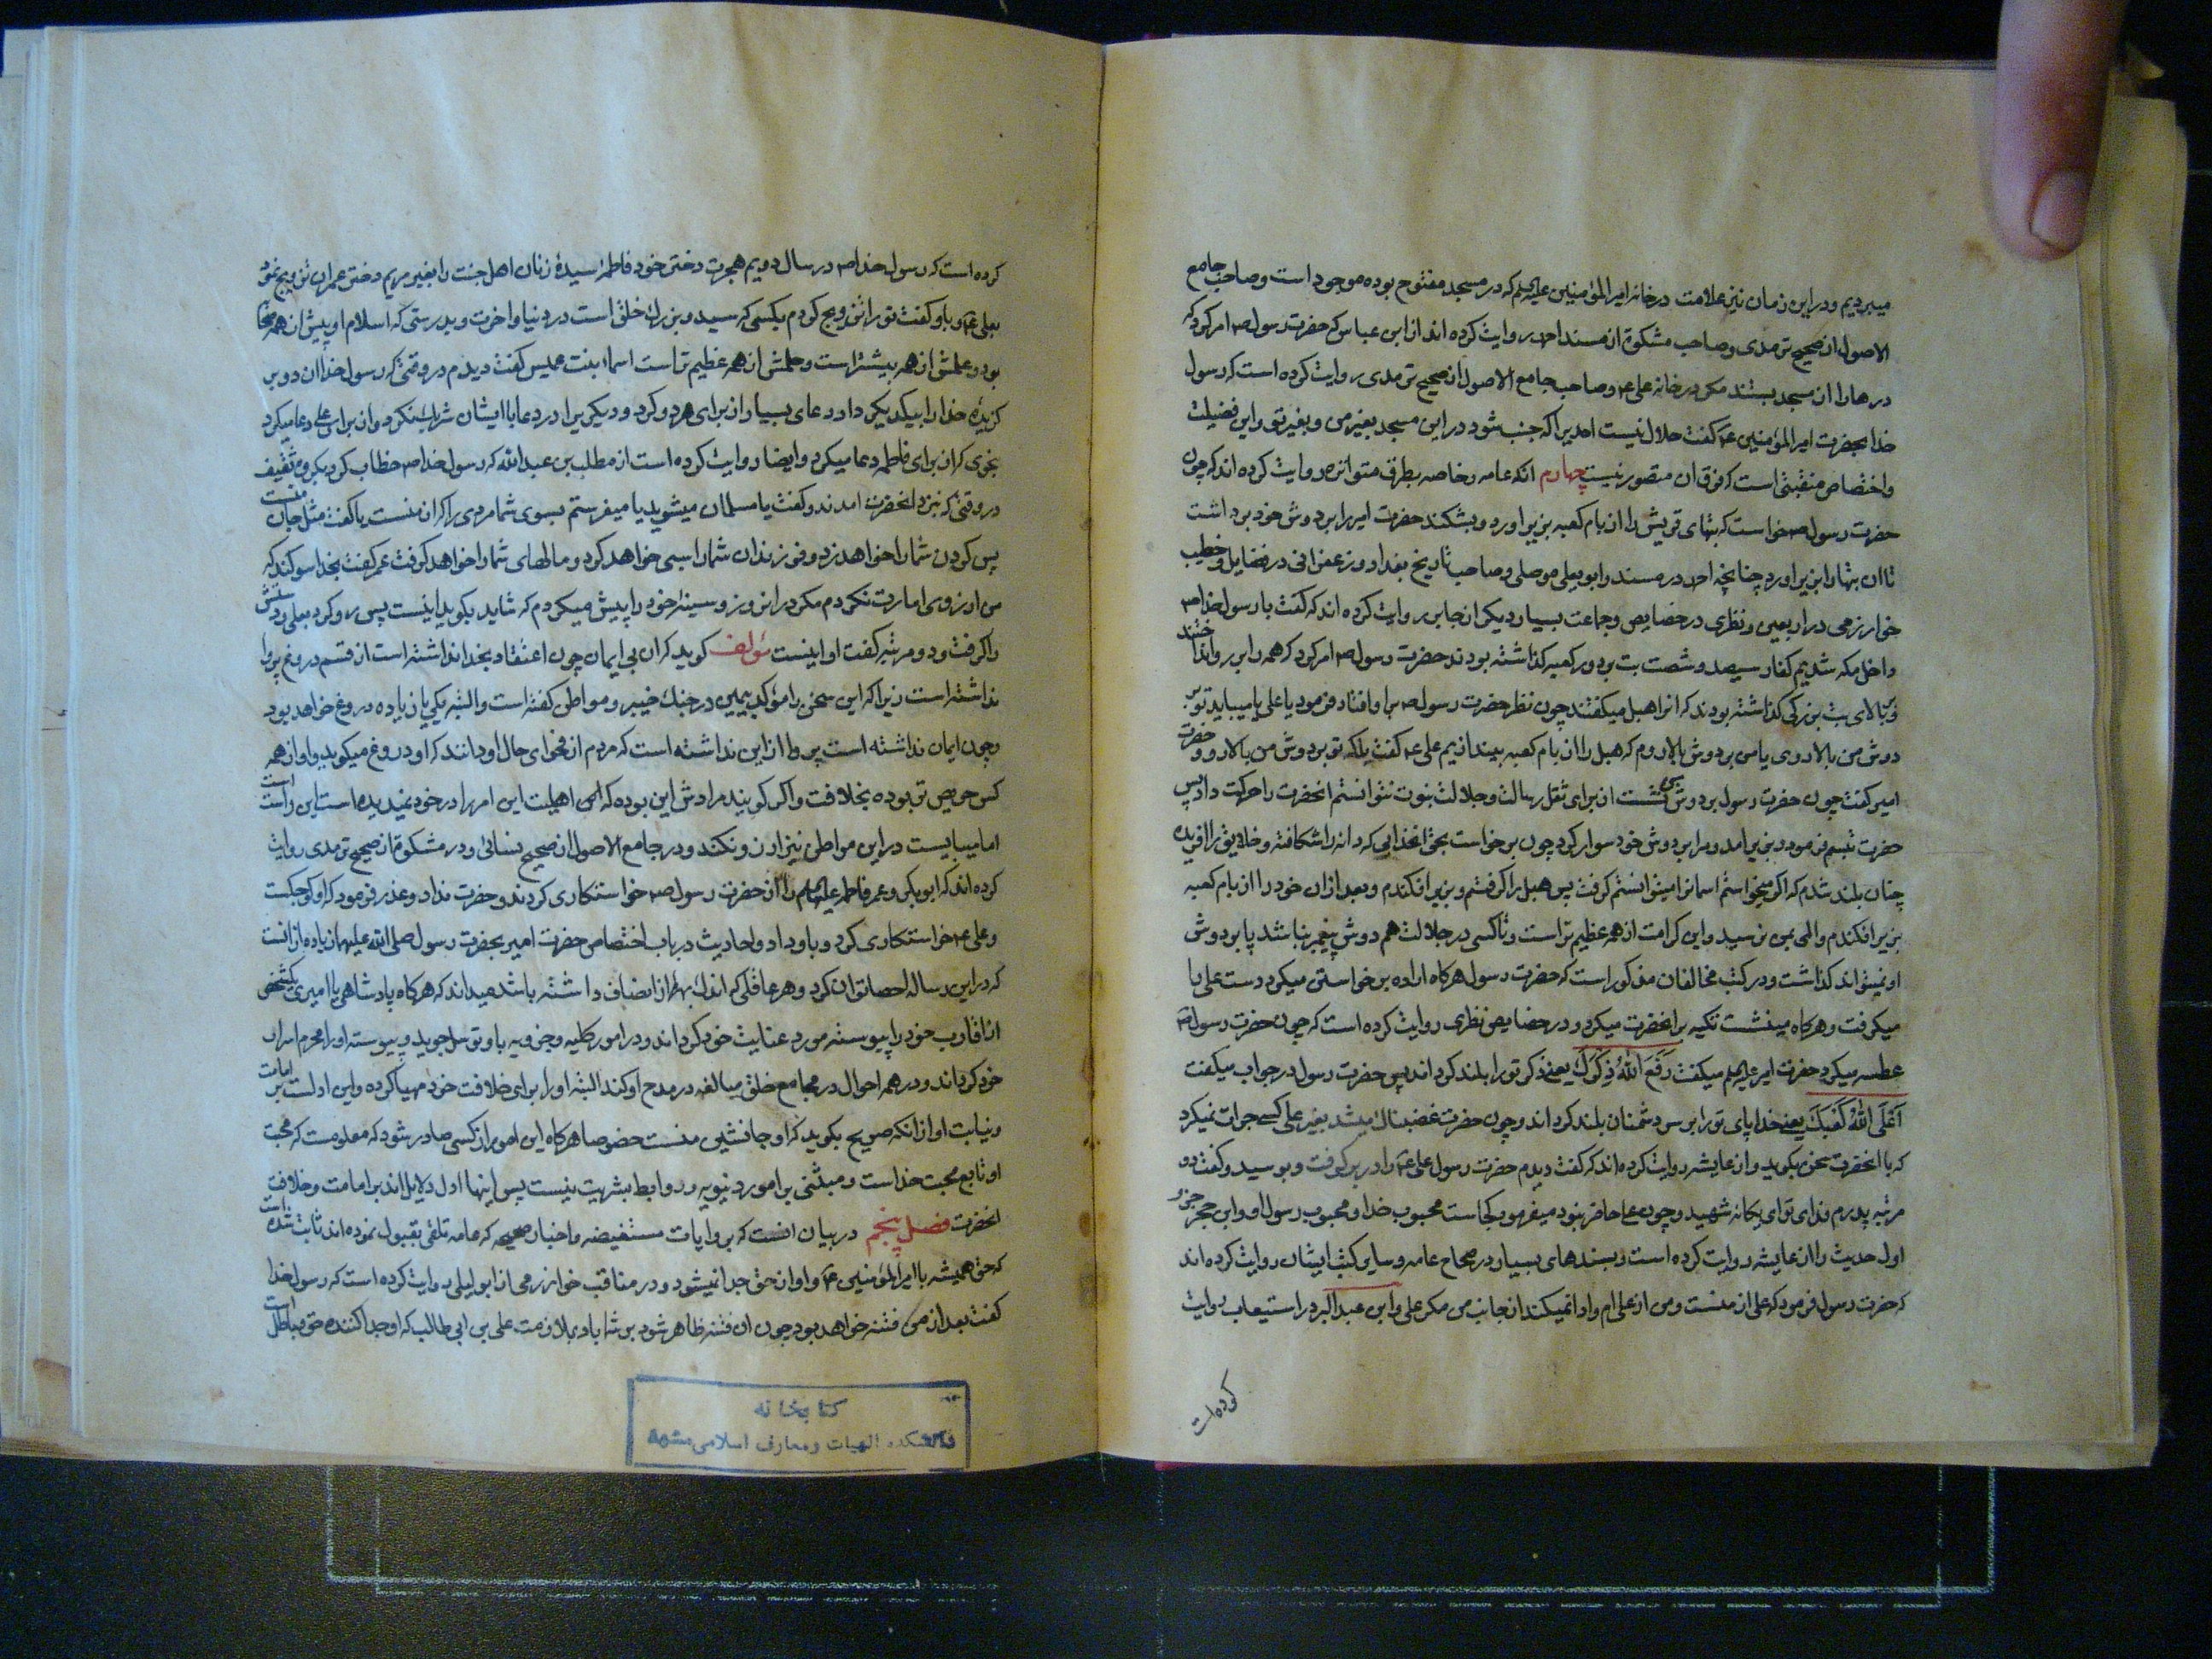 میبردیم و در این زمان نیز علامت در خانه امیر المؤمنین علیه السلم که در مسجد مفتوح بوده موجود است و صاحب جامع
الاصول از صحیح ترمدی و صاحب مشکوة از مسند احمد روایت کرده اند از ابن عباس که حضرت رسول ص امر کرد که
درها را از مسجد بستند مکر در خانه علی ع و صاحب جامع الاصول از صحیح ترمدی روایت کرده است که رسول
خدا بحضرت امیر المؤمنین ع کفت حلال نیست احدیرا که جنب شود در این مسجد بغیر من و بغیر تو و این فضیلت
و اختصاص منقبتی است که فوق ان متصور نیست چهارم انکه عامه و خاصه بطرق متواتره روایت کرده اند که چون
حضرت رسول ص خواست که بتهای قریش را از بام کعبه بزیر اورد و بشکند حضرت امیر را بر دوش خود برداشت
تا ان بتها را بزیر اورد چنانچه احمد در مسند و ابو یعلی موصلی و صاحب تاریخ بغداد و زعفرانی در فضایل و خطیب
خوارزمی در اربعین و نظری در خصایص و جماعت بسیار دیکر از جابر روایت کرده اند که کفت با رسول خدا ص
داخل مکه شدیم کفار سیصد و شصت بت بر دور کعبه کذاشته بودند حضرت رسول ص امر کرد که همه را بر رو انداختند
و بر بالای بت بزرکی کذاشته بودند که انرا هبل میکفتند چون نظر حضرت رسول ص بر او افتاد فرمود یا علی یا میباید تو بر
دوش من بالا روی یا من بر دوش تو بالا روم که هبل را از بام کعبه بیندازیم علی ع کفت بلکه تو بر دوش من بالا رو و حضرت
امیر کفت چون حضرت رسول بر دوش من نشست از برای ثقل رسالت و جلالت نبوت نتوانستم انحضرت را حرکت داد پس
حضرت تبسم فرمود و بزیر امد و مرا بر دوش خود سوار کرد چون بر خواست بحق انخدایی که دانه را شکافته و خلایق را افریده
چنان بلند شدم که اکر میخواستم اسمانرا میتوانستم کرفت پس هبل را کرفتم و بزیر افکندم و بعد از ان خود را از بام کعبه
بزیر افکندم و المی بمن نرسید و این کرامت از همه عظیم تر است و تا کسی در جلالت هم دوش پیغمبر نباشد پا بر دوش
او نمیتواند کذاشت و در کتب مخالفان مذکور است که حضرت رسول هرکاه اراده بر خواستن میکرد دست علی را
میکرفت و هرکاه مینشست تکیه بر انحضرت میکرد و در خصایص نظری روایت کرده است که چون حضرت رسول ص
عطسه میکرد حضرت امیر علیه السلم میکفت رَفَعَ اللّهُ ذِکْرَکَ یعنی خدا ذکر تو را بلند کرداند پس حضرت رسول در جواب میکفت
اَعْلَی اللّهُ کَعْبَکَ یعنی خدا پای تو را بر سر دشمنان بلند کرداند و چون حضرت غضبناک میشد بغیر علی کسی جرات نمیکرد
که با انحضرت سخن بکوید و از عایشه روایت کرده اند که کفت دیدم حضرت رسول علی ع را در بر کرفت و بوسید و کفت دو
مرتبه پدرم فدای تو ای یکانه شهید و چون علی حاضر نبود میفرمود کجاست محبوب خدا و محبوب رسول او و ابن حجر جزو
اول حدیث را از عایشه روایت کرده است و بسندهای بسیار در صحاح عامه و سایر کتب ایشان روایت کرده اند
که حضرت رسول فرمود که علی از منست و من از علی ام و ادا نمیکند از جانب من مکر علی و ابن عبد البر در استیعاب روایت
کرده است
کرده است که رسول خدا ص در سال دویم هجرت دختر خود فاطمه سیدهٔ زنان اهل جنت را بغیر مریم دختر عمران تزویج نمود
بعلی ع و باو کفت تو را تزویج کردم بکسی که سید و بزرک خلق است در دنیا و اخرت و بدرستی که اسلام او پیش از همه صحابه
بود و علمش از همه بیشتر است و حلمش از همه عظیم تر است اسماء بنت عمیس کفت دیدم در وقتی که رسول خدا ان دو بر
کزیدهٔ خدا را بیکدیکر داد دعای بسیار از برای هر دو کرد و دیکریرا در دعا با ایشان شریک نکرد و از برای علی دعا میکرد
بنحوی که از برای فاطمه دعا میکرد و ایضا روایت کرده است از مطلب بن عبد الله که رسول خدا ص خطاب کرد بکروه ثقیف
در وقتی که بنزد انحضرت امدند و کفت یا مسلمان میشوید یا میفرستم بسوی شما مردی را که از منست یا کفت مثل جان منست
پس کردن شما را خواهد زد و فرزندان شما را اسیر خواهد کرد و مالهای شما را خواهد کرفت عمر کفت بخدا سوکند که
من ارزوی امارت نکردم مکر در انروز و سینهٔ خود را پیش میکردم که شاید بکوید اینست پس رو کرد بعلی و دستش
را کرفت و دو مرتبه کفت او اینست مؤلف کوید که ان بی ایمان چون اعتقاد بخدا نداشته است از قسم دروغ پروا
نداشته است زیرا که این سخن را مؤکد بیمین در جنک خیبر و مواطن کفته است و البته یکی یا زیاده دروغ خواهد بود
و چون ایمان نداشته است پروا از این نداشته است که مردم از فحوای حال او دانند که او دروغ میکوید و او از همه
کس حریص تر بوده بخلافت و اکر کویند مرادش این بوده که اهلیت این امر را در خود نمیدیده است این راست است
اما میبایست در این مواطن نیز ارزو نکند و در جامع الاصول از صحیح نسائی و در مشکوة از صحیح ترمدی روایت
کرده اند که ابو بکر و عمر فاطمه علیها السلم را از حضرت رسول ص خواستکاری کردند و حضرت نداد و عذر فرمود که او کوچکست
و علی ع خواستکاری کرد و باو داد و احادیث در باب اختصاص حضرت امیر بحضرت رسول صلی الله علیهما زیاده از انست
که در این رساله احصا توان کرد و هر عاقلی که اندک بهرهٔ از انصاف داشته باشد میداند که هرکاه پادشاهی یا امیری یکشخصی
از اقارب خود را پیوسته مورد عنایت خود کرداند و در امور کلیه و جزویه باو توسل جوید و پیوسته او را محرم اسرار
خود کرداند و در همه احوال در مجامع خلق مبالغه در مدح او کند البته او را برای خلافت خود مهیا کرده و این ادلست بر امامت
و نیابت او از انکه صریح بکوید که او جانشین منست خصوصا هرکاه این امور از کسی صادر شود که معلومست که محبت
او تابع محبت خداست و مبتنی بر امور دنیویه و روابط بشریت نیست پس اینها اول دلایل اند بر امامت و خلافت
انحضرت فصل پنجم در بیان انست که بروایات مستفیضه و اخبار صحیحه که عامه تلقی بقبول نموده اند ثابت شده است
که حق همیشه با امیر المؤمنین ع و او از حق جدا نمیشود و در مناقب خوارزمی از ابو لیلی روایت کرده است که رسول خدا
کفت بعد از من فتنه خواهد بود چون ان فتنه ظاهر شود بر شما باد بملازمت علی بن ابی طالب که او جدا کننده حق و باطل است
کتابخانه
دانشکده الهیات و معارف اسلامی مشهد